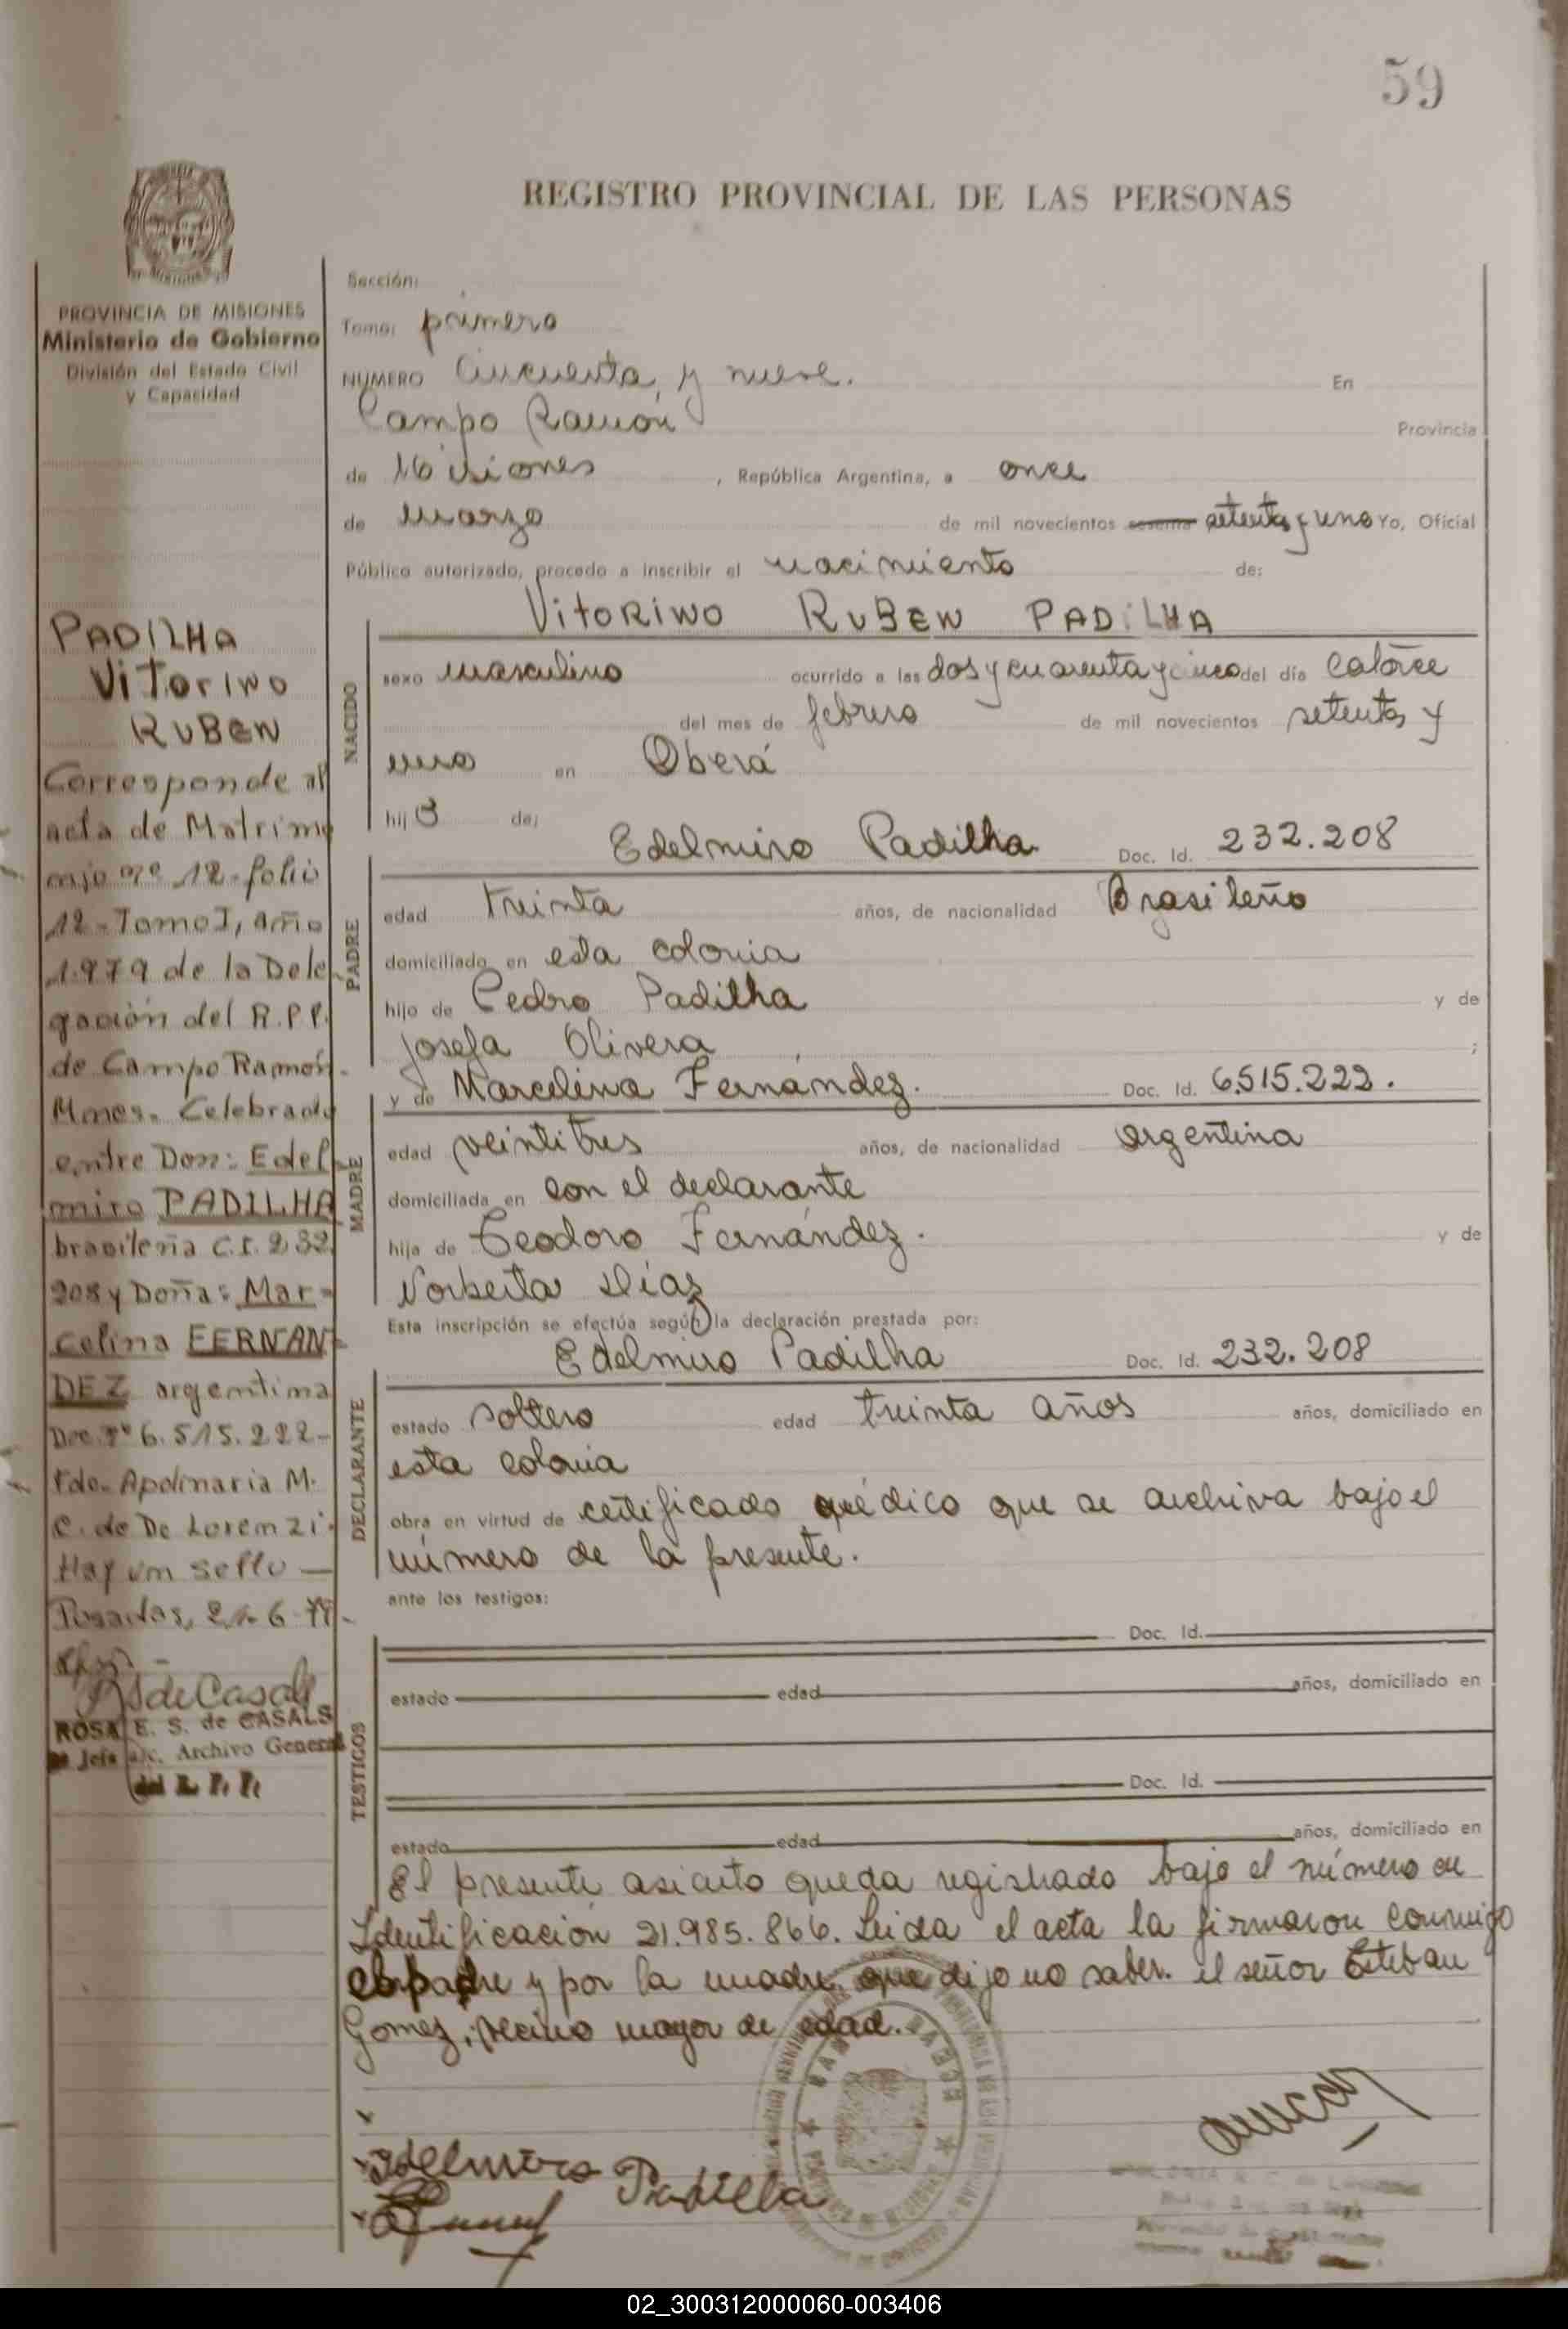 59
REGISTRO PROVINCIAL DE LAS PERSONAS
PROVINCIA DE MISIONES
Ministerio de Gobierno
División del Estado Civil
y Capacidad
Sección:
Tomo: primero
NUMERO Cincuenta y nueve. En
Campo Ramón Provincia
de Misiones , República Argentina, a once
de marzo de mil novecientos sesenta setenta y uno Yo, Oficial
Público autorizado, procedo a inscribir el nacimiento de:
VitoRiNO RuBEN PADiLHA
NACIDO
sexo masculino ocurrido a las dos y cuarenta y cinco del día catorce
del mes de febrero de mil novecientos setenta y
uno en Oberá
hijo de:
Edelmiro Padilha Doc. Id. 232.208
PADRE
edad treinta años, de nacionalidad Brasileño
domiciliado en esta colonia
hijo de Pedro Padilha y de
Josefa Olivera ;
y de Marcelina Fernández. Doc. Id. 6.515.222.
MADRE
edad veintitres años, de nacionalidad argentina
domiciliada en con el declarante
hija de Teodoro Fernández. y de
Norberta Díaz
Esta inscripción se efectúa según la declaración prestada por:
Edelmiro Padilha Doc. Id. 232.208
DECLARANTE
estado soltero edad treinta años años, domiciliado en
esta colonia
obra en virtud de certificado médico que se archiva bajo el
número de la presente.
ante los testigos:
TESTIGOS
Doc. Id.
estado edad años, domiciliado en
Doc. Id.
estado edad años, domiciliado en
El presente asiento queda registrado bajo el número de
Identificación 21.985.866. Leida el acta la firmaron conmigo
el padre y por la madre que dijo no saber. el señor Esteban
Gomez, vecino mayor de edad.
Edelmiro Padilla
PADILHA
ViTorino
RuBEN
Corresponde al
acta de Matrimo
nio nº 12-folio
12-Tomo I, año
1.979 de la Dele
gación del R.P.P.
de Campo Ramón.
Mnes. Celebrado
entre Don: Edel
miro PADILHA
brasileña C.I. 232.
208 y Doña: Mar-
celina FERNAN-
DEZ argentina
Doc. Nº 6.515.222-
Fdo. Apolinaria M.
C. de De Lorenzi.
Hay un sello —
Posadas, 21-6-79-
ROSA E. S. de CASALS
Jefa a/c. Archivo General
del R. P. P.
02_300312000060-003406